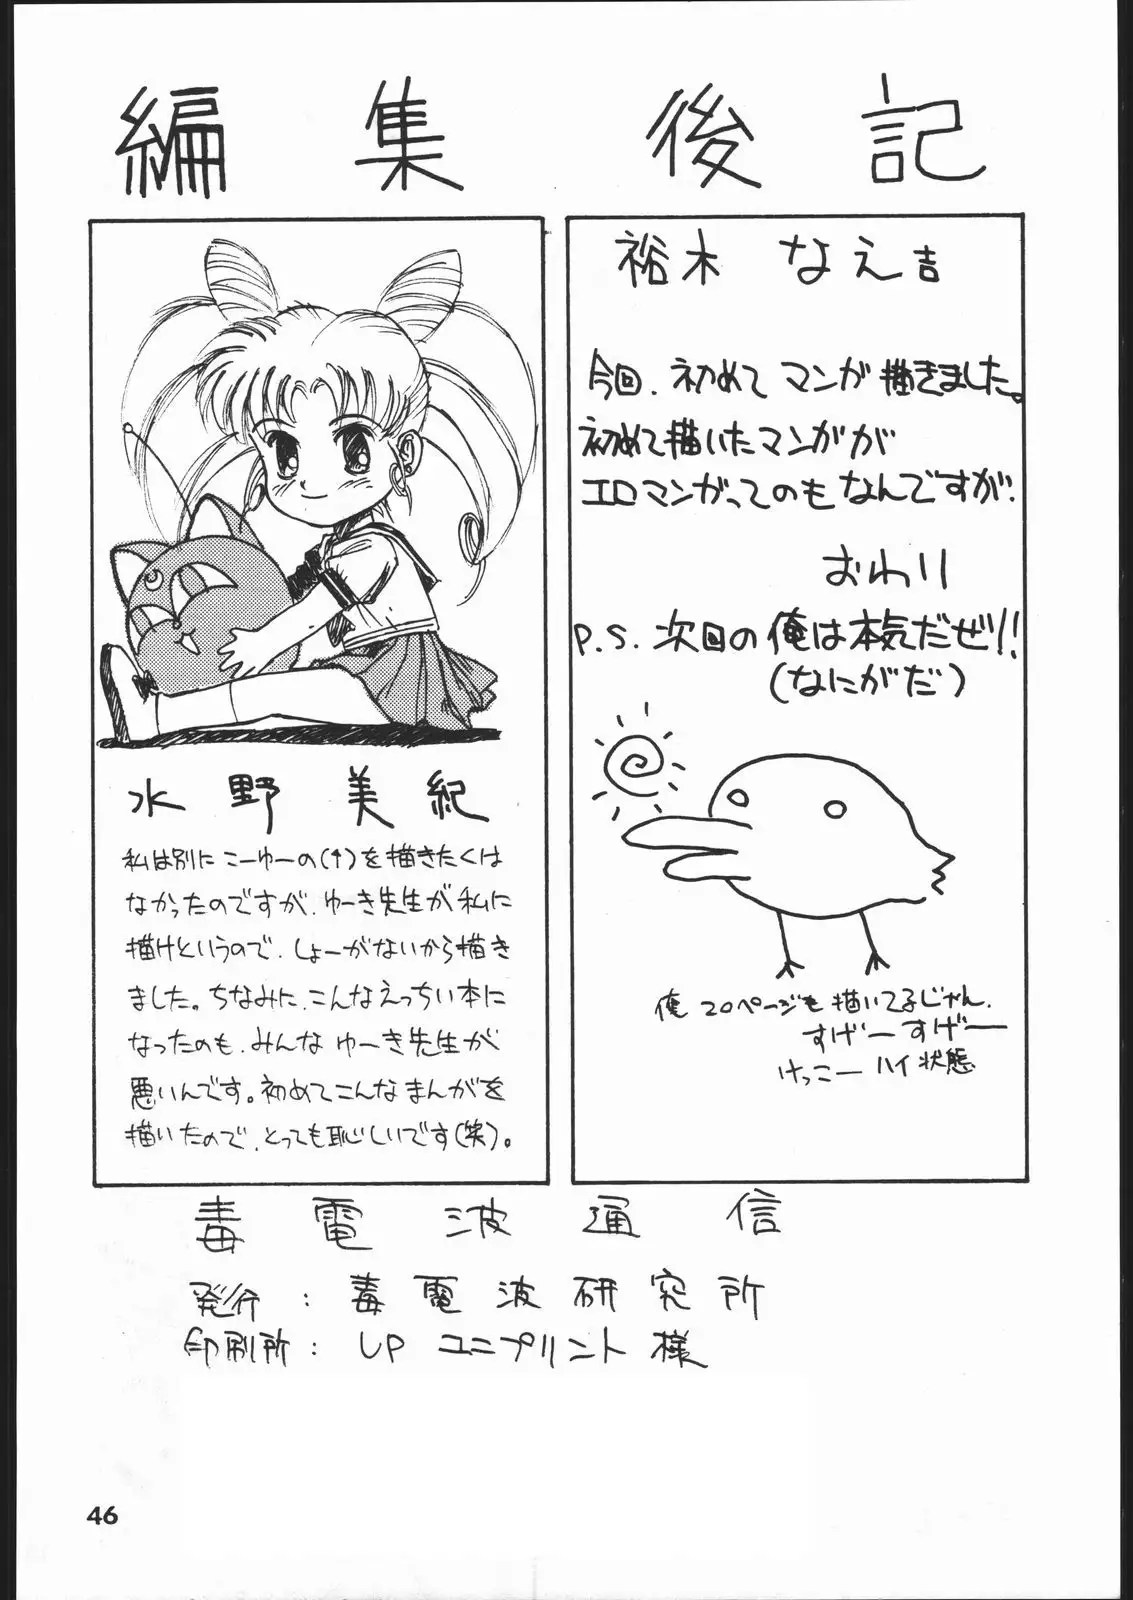 編集後記
水野美紀
私は別にこーゆーの(↑)を描きたくは
なかったのですが、ゆーき先生が私に
描けというので、しょーがないから描き
ました。ちなみに、こんなえっちい本に
なったのも、みんなゆーき先生が
悪いんです。初めてこんなまんがを
描いたので、とっても恥しいです(笑)。
裕木 なえ吉
今回、初めてマンガ描きました。
初めて描いたマンガが
エロマンガってのもなんですが、
おわり
P.S. 次回の俺は本気だぜ!!
(なにがだ)
俺20ページも描いてるじゃん、
すげーすげー
けっこーハイ状態
毒電波通信
発行:毒電波研究所
印刷所:UP ユニプリント様
46